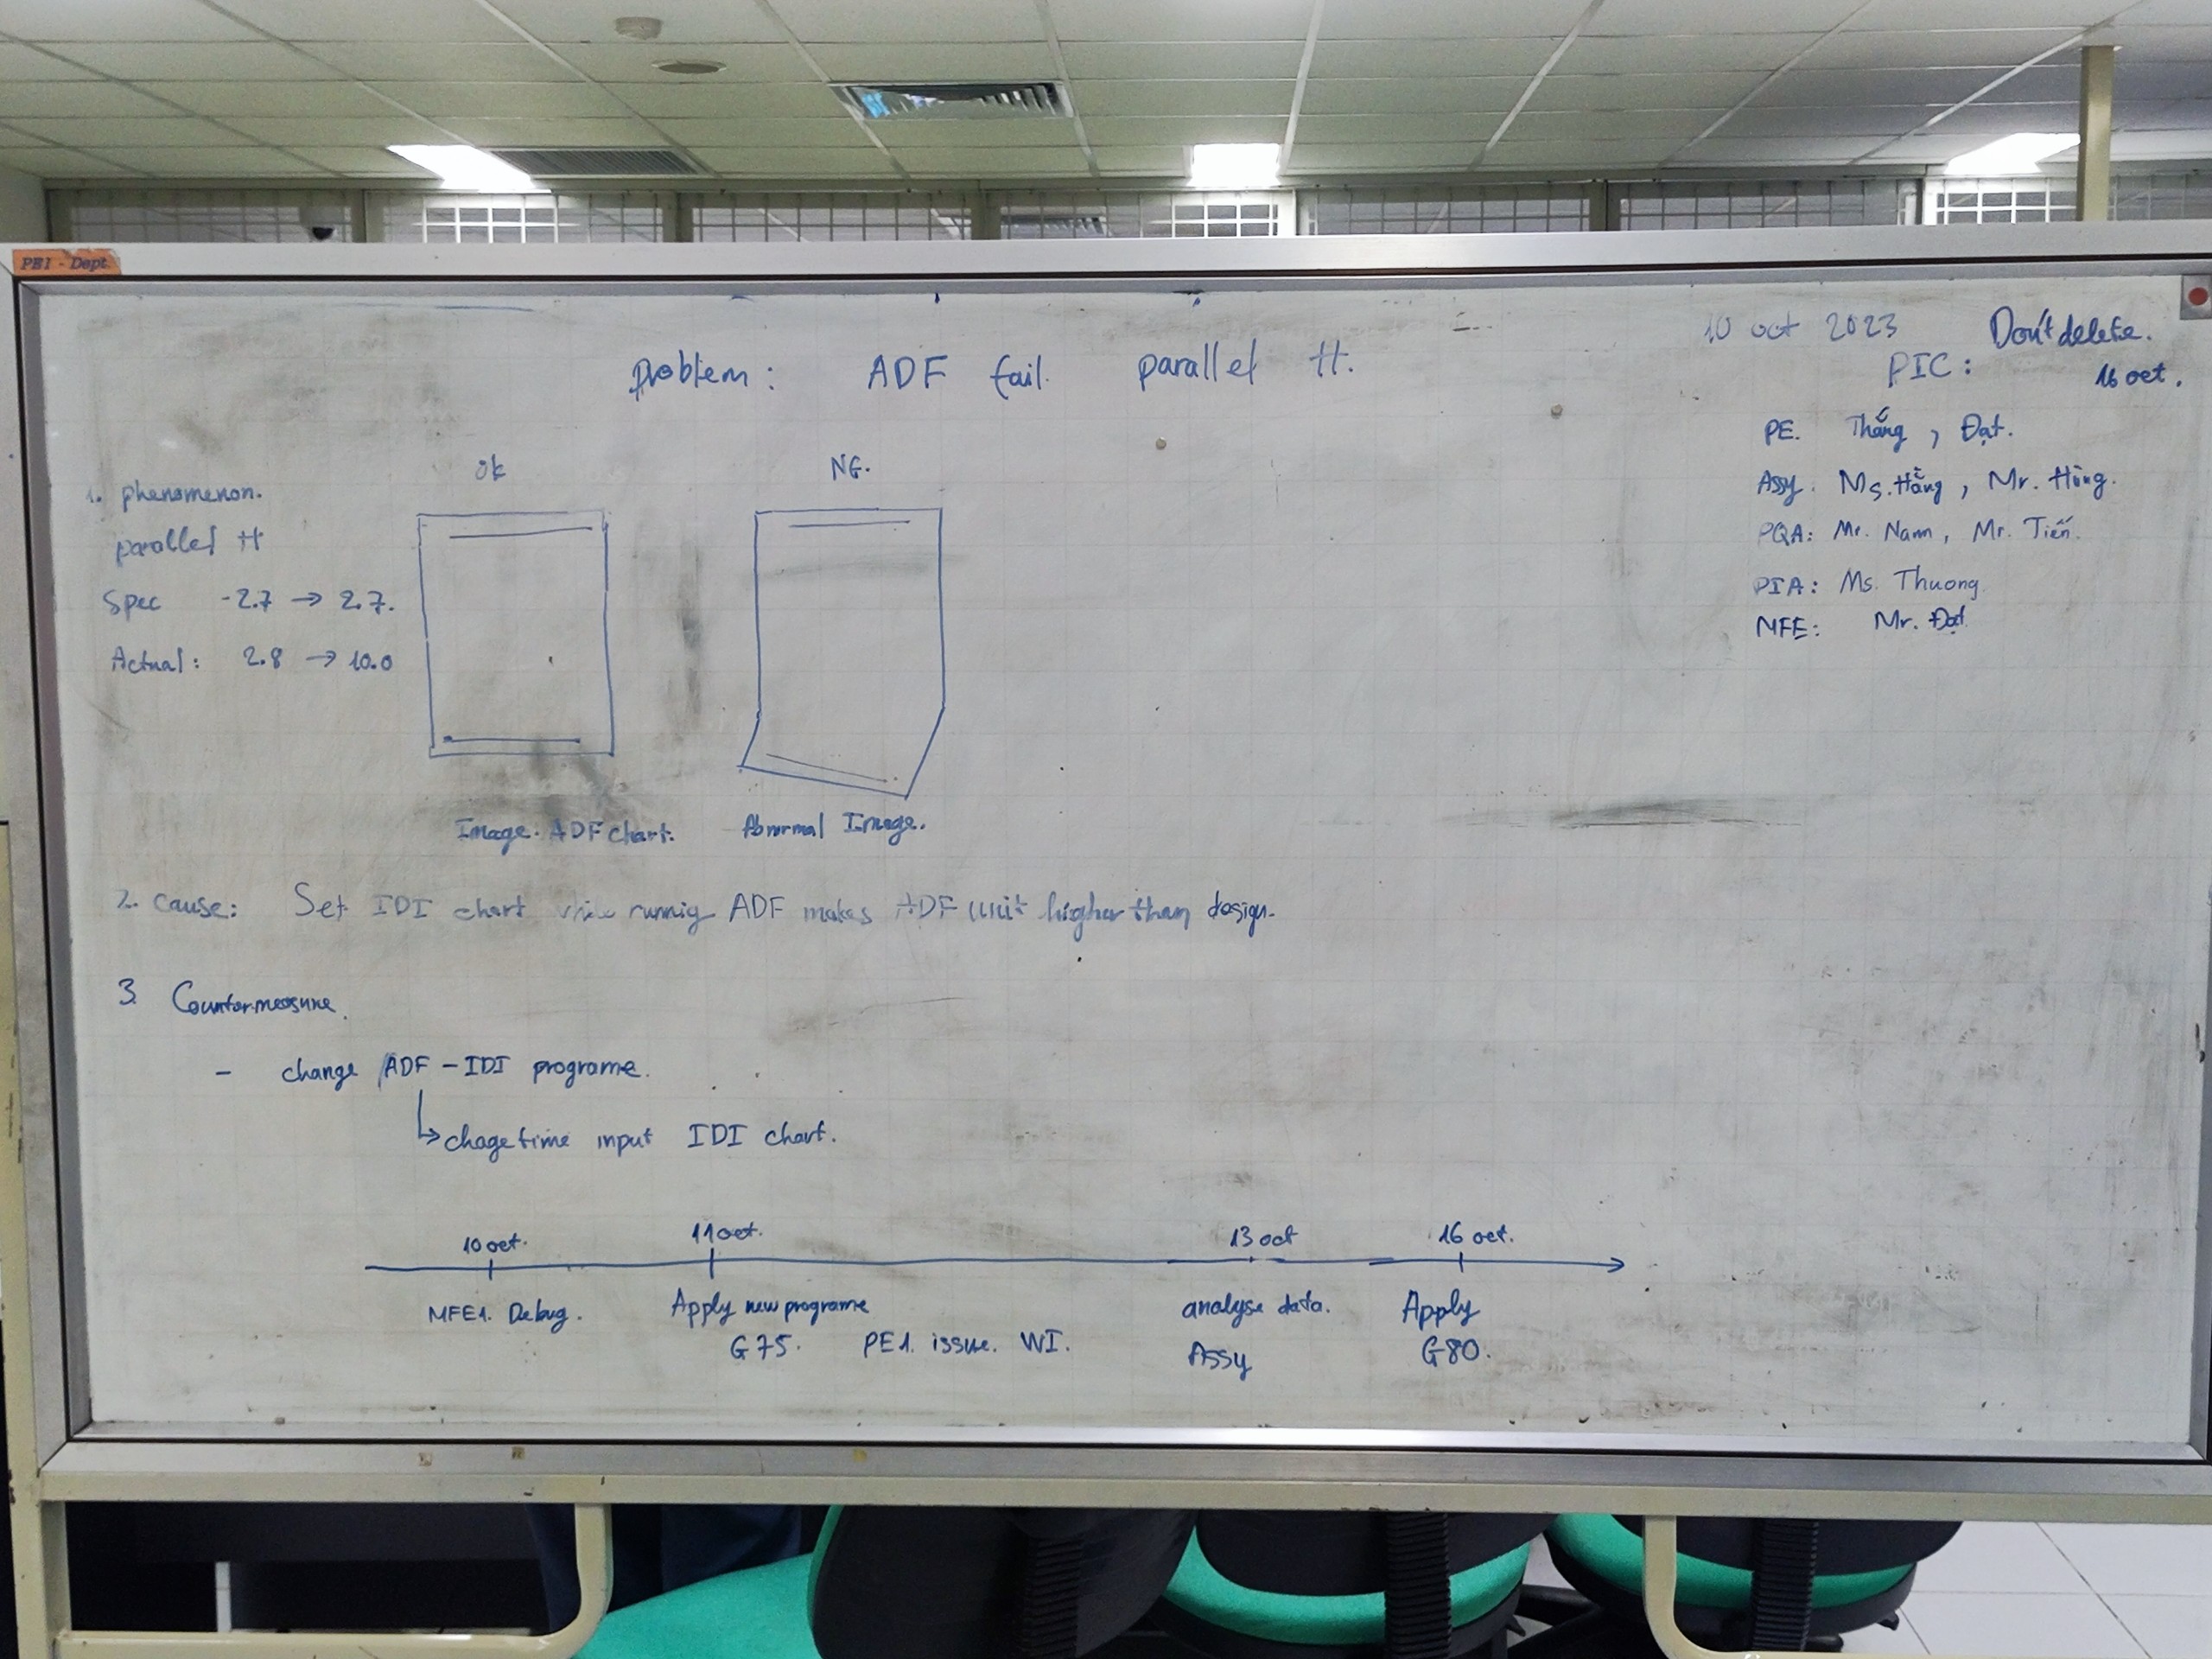 PE1 - Dept.
10 oct 2023
Don't delete.
16 oct.
Problem: ADF fail parallel H.
PIC:
PE. Thắng, Đạt.
Assy. Ms. Hằng, Mr. Hùng.
PQA: Mr. Nam, Mr. Tiến.
PIA: Ms. Thuong
MFE: Mr. Đạt
1. phenomenon.
parallel H
Spec -2.7 → 2.7.
Actual: 2.8 → 10.0
Ok
NG.
Image. ADF chart.
Abnormal Image.
2. cause: Set IDI chart runnig ADF makes ADF unit higher than design.
3. Countermeasure.
- change ADF - IDI programe.
chage time input IDI chart.
10 oct.
11 oct.
13 oct
16 oct.
MFE1. Debug.
Apply new programe
G75.
PE1. issue. WI.
analyse data.
Assy
Apply
G80.